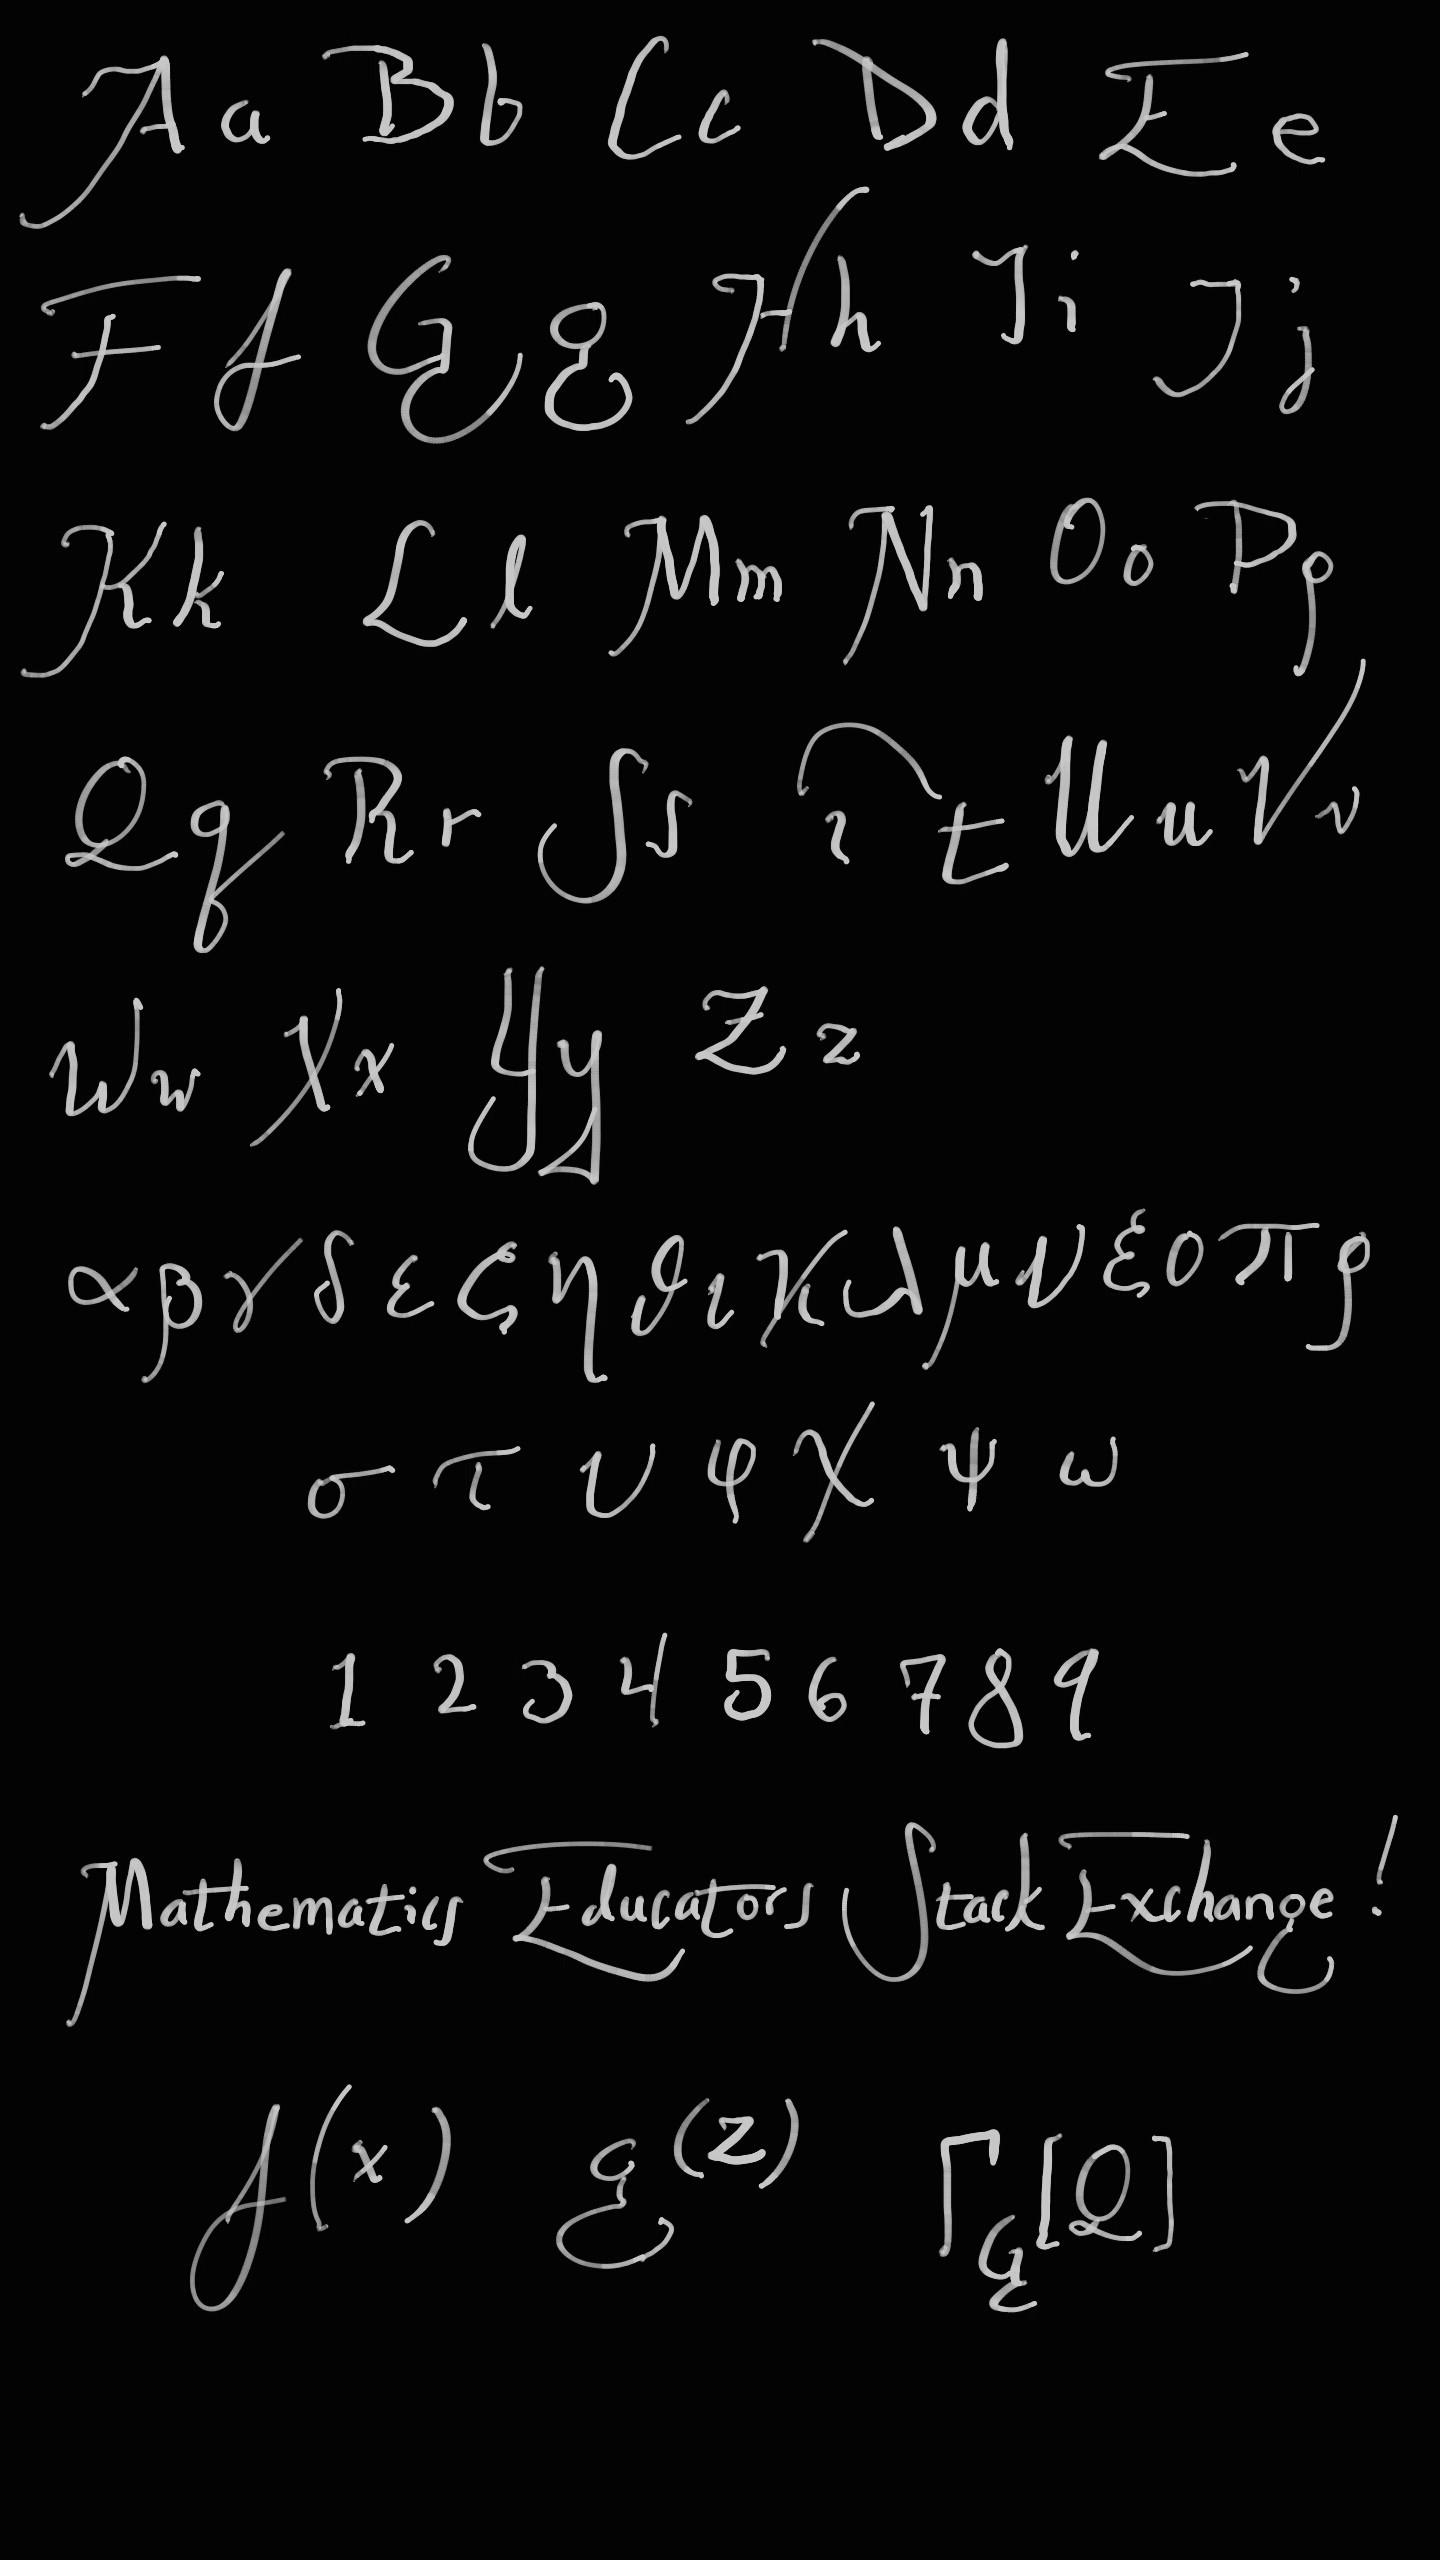 Aa Bb Cc Dd Ee
Ff Gg Hh Ii Jj
Kk Ll Mm Nn Oo Pp
Qq Rr Ss Tt Uu Vv
Ww Xx Yy Zz
α β γ δ ε ζ η θ ι κ λ μ ν ξ ο π ρ
σ τ υ φ χ ψ ω
1 2 3 4 5 6 7 8 9
Mathematics Educators Stack Exchange!
f(x) g(z) Γ_G[Q]